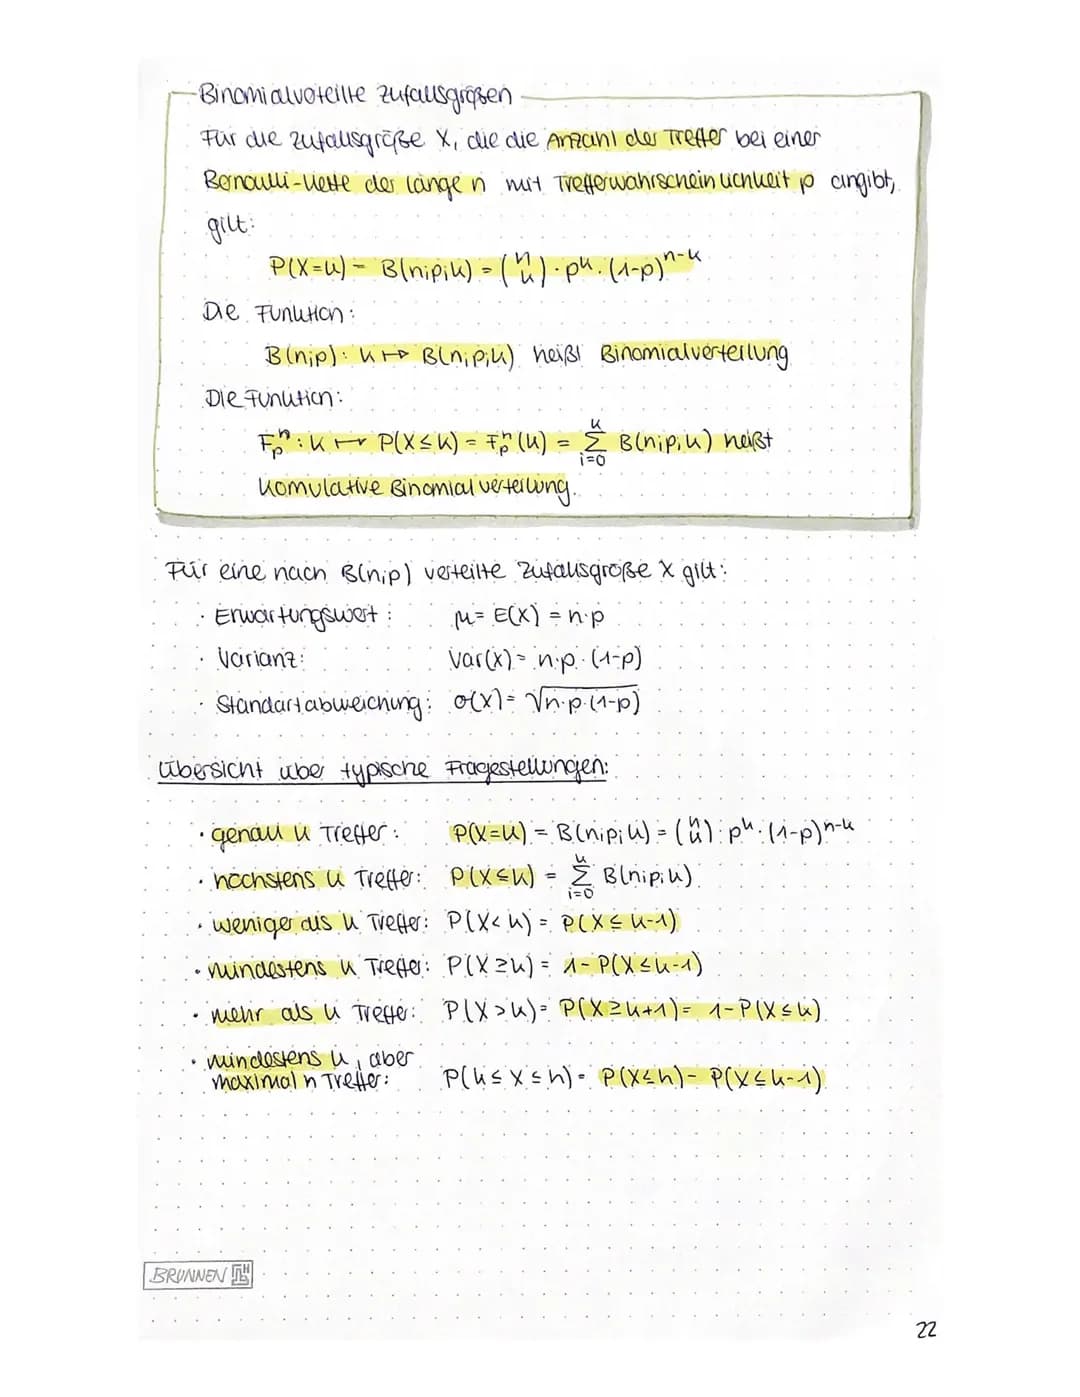 Binomialverteilte Zufallsgrößen
Für die Zufallsgröße X, die die Anzahl der Treffer bei einer
Bernoulli-Kette der Länge n mit Trefferwahrscheinlichkeit p angibt,
gilt:
P(X=k) = B(n;p;k) = (n k) · p^k · (1-p)^n-k
Die Funktion:
B(n;p): k ↦ B(n;p;k) heißt Binomialverteilung
Die Funktion:
F_p^n : k ↦ P(X≤k) = F_p^n (k) = Σ_{i=0}^{k} B(n;p;k) heißt
Komulative Binomialverteilung.
Für eine nach B(n;p) verteilte Zufallsgröße X gilt:
· Erwartungswert: μ = E(X) = n·p
· Varianz: Var(X) = n·p·(1-p)
· Standartabweichung: σ(X) = √n·p·(1-p)
Übersicht über typische Fragestellungen:
· genau k Treffer: P(X=k) = B(n;p;k) = (n k) · p^k · (1-p)^n-k
· höchstens k Treffer: P(X≤k) = Σ_{i=0}^{k} B(n;p;k)
· weniger als k Treffer: P(X<k) = P(X≤k-1)
· mindestens k Treffer: P(X≥k) = 1-P(X≤k-1)
· mehr als k Treffer: P(X>k) = P(X≥k+1) = 1-P(X≤k)
· mindestens k, aber
maximal h Treffer: P(k≤X≤h) = P(X≤h) - P(X≤k-1)
BRUNNEN
22